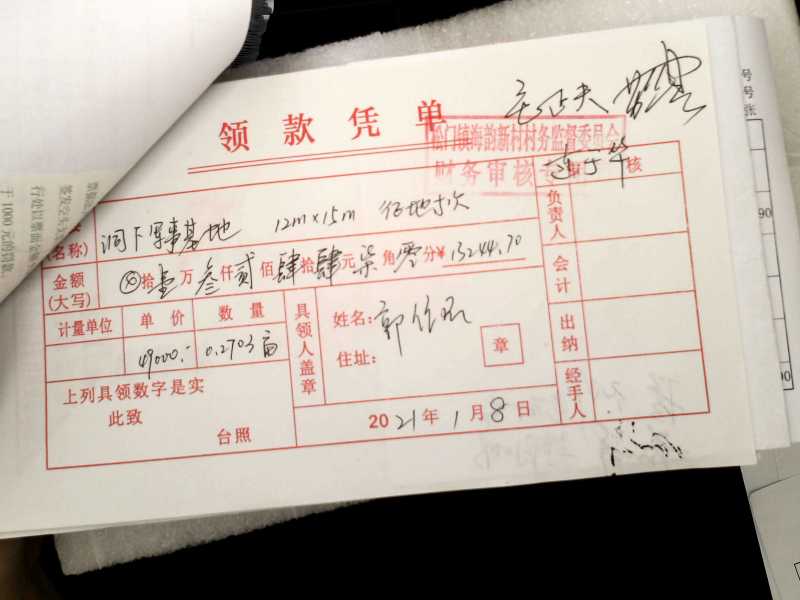 领款凭单
松门镇海韵新村村务监督委员会
财务审核
审核
(名称) 洞下军事基地 12m×15m 征地款
金额(大写) ⊗拾壹万叁仟贰佰肆拾肆元柒角零分¥13244.70
计量单位 单价 数量
49000.- 0.2703亩
上列具领数字是实
此致
台照
具领人盖章
姓名:郭
住址:
章
2021年1月8日
负责人
会计
出纳
经手人
于1000元的罚款
号
号
张
90
00